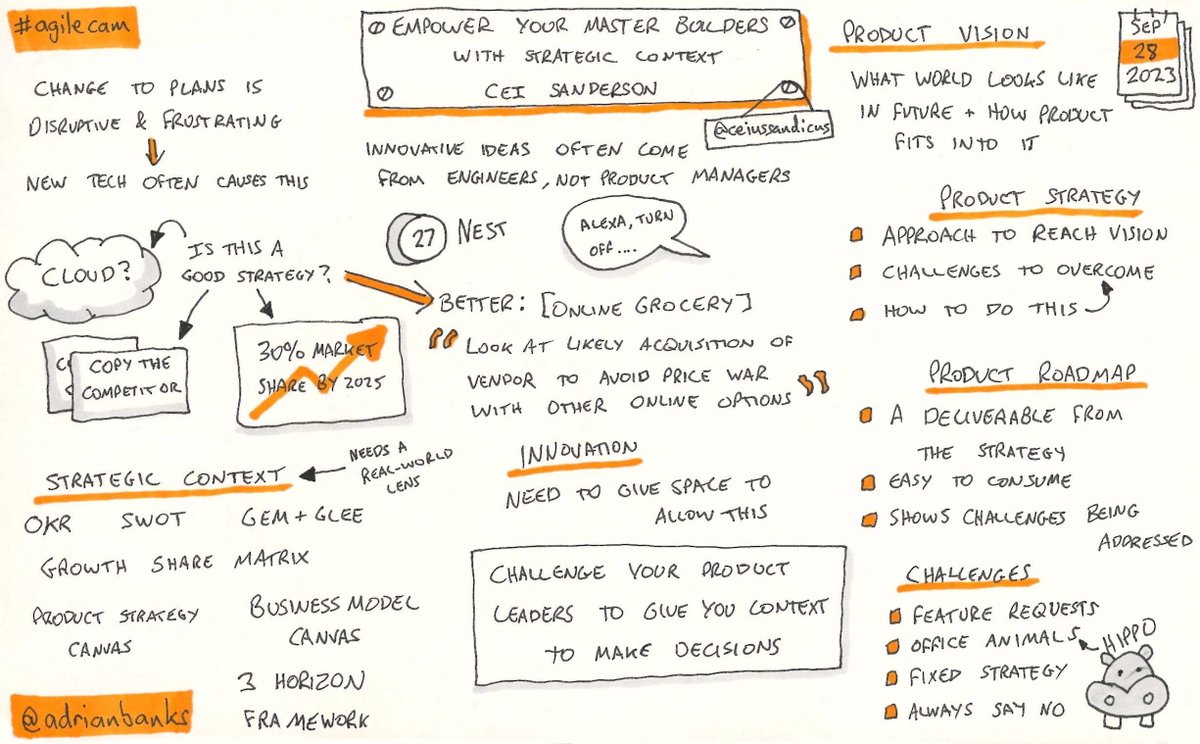 #agilecam
CHANGE TO PLANS IS
DISRUPTIVE & FRUSTRATING
NEW TECH OFTEN CAUSES THIS
CLOUD?
IS THIS A
GOOD STRATEGY?
COPY THE
COMPETITOR
30% MARKET
SHARE BY 2025
STRATEGIC CONTEXT
NEEDS A
REAL-WORLD
LENS
OKR SWOT GEM + GLEE
GROWTH SHARE MATRIX
PRODUCT STRATEGY
CANVAS
BUSINESS MODEL
CANVAS
3 HORIZON
FRAMEWORK
@adrianbanks
EMPOWER YOUR MASTER BUILDERS
WITH STRATEGIC CONTEXT
CEI SANDERSON
@ceiussandicus
INNOVATIVE IDEAS OFTEN COME
FROM ENGINEERS, NOT PRODUCT MANAGERS
27 NEST
ALEXA, TURN
OFF....
BETTER: [ONLINE GROCERY]
"LOOK AT LIKELY ACQUISITION OF
VENDOR TO AVOID PRICE WAR
WITH OTHER ONLINE OPTIONS"
INNOVATION
NEED TO GIVE SPACE TO
ALLOW THIS
CHALLENGE YOUR PRODUCT
LEADERS TO GIVE YOU CONTEXT
TO MAKE DECISIONS
PRODUCT VISION
SEP
28
2023
WHAT WORLD LOOKS LIKE
IN FUTURE + HOW PRODUCT
FITS INTO IT
PRODUCT STRATEGY
APPROACH TO REACH VISION
CHALLENGES TO OVERCOME
HOW TO DO THIS
PRODUCT ROADMAP
A DELIVERABLE FROM
THE STRATEGY
EASY TO CONSUME
SHOWS CHALLENGES BEING
ADDRESSED
CHALLENGES
FEATURE REQUESTS
OFFICE ANIMALS
HIPPO
FIXED STRATEGY
ALWAYS SAY NO